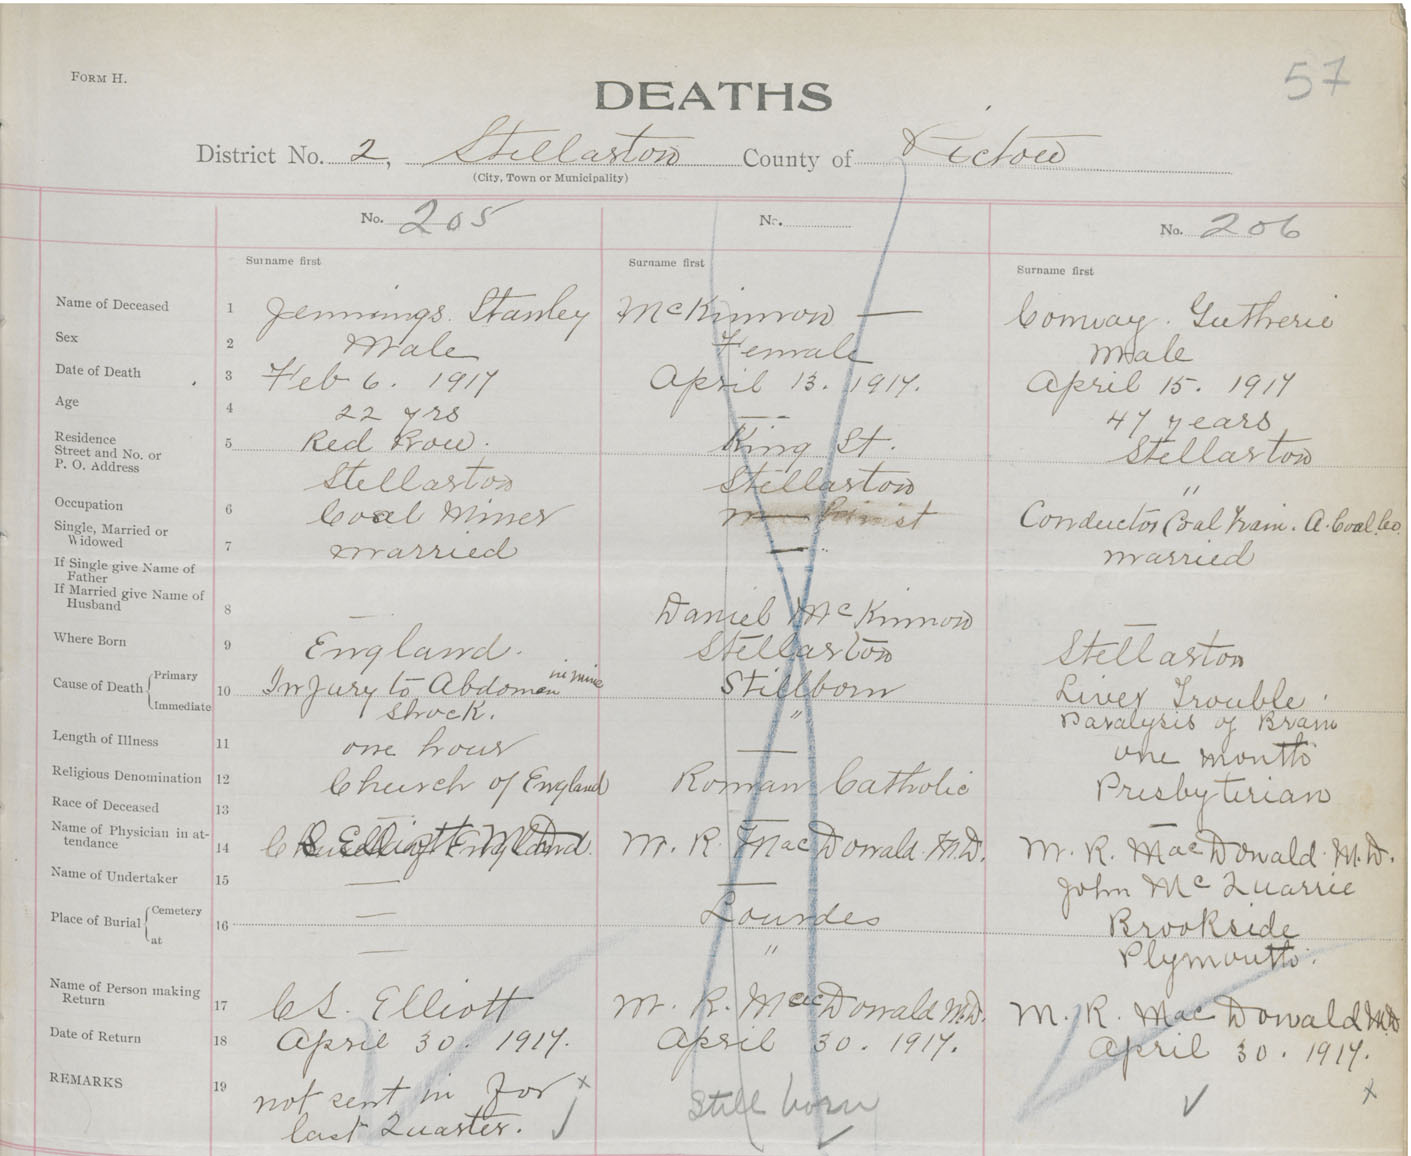 57
FORM H.
DEATHS
District No. 2, Stellarton County of Pictou
(City, Town or Municipality)
No. 205 No. No. 206
Surname first Surname first Surname first
Name of Deceased 1 Jennings. Stanley McKinnon — Conway. Gutherie
Sex 2 Male Female Male
Date of Death 3 Feb 6. 1917 April 13. 1917. April 15. 1917
Age 4 22 yrs — 47 years
Residence Street and No. or P. O. Address 5 Red Row. King St. Stellarton
Stellarton Stellarton "
Occupation 6 Coal Miner Conductor Coal Train. A. Coal. Co.
Single, Married or Widowed 7 married — married
If Single give Name of Father
If Married give Name of Husband 8 — Daniel McKinnon —
Where Born 9 England. Stellarton Stellarton
Cause of Death Primary 10 Injury to Abdomen in mine Stillborn Liver Trouble.
Immediate Shock. " Paralysis of Brain
Length of Illness 11 one hour — one month
Religious Denomination 12 Church of England Roman Catholic Presbyterian
Race of Deceased 13 — — —
Name of Physician in attendance 14 C S Elliott M D. M. R. MacDonald. M.D. M. R. MacDonald. M.D.
Name of Undertaker 15 — — John McQuarrie
Place of Burial Cemetery 16 — Lourdes Brookside
at — " Plymouth.
Name of Person making Return 17 CS. Elliott M. R. MacDonald M.D. M. R. MacDonald M.D
Date of Return 18 April 30. 1917. April 30. 1917. April 30. 1917.
REMARKS 19 not sent in for x Still born x
last Quarter.